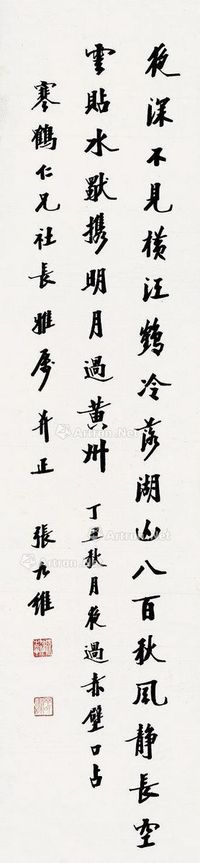 夜深不見橫江鶴冷落湖山八百秋風靜長空
雲貼水獸携明月過黃州 丁丑秋月夜過赤壁口占
寒鶴仁兄社長雅屬并正 張九維